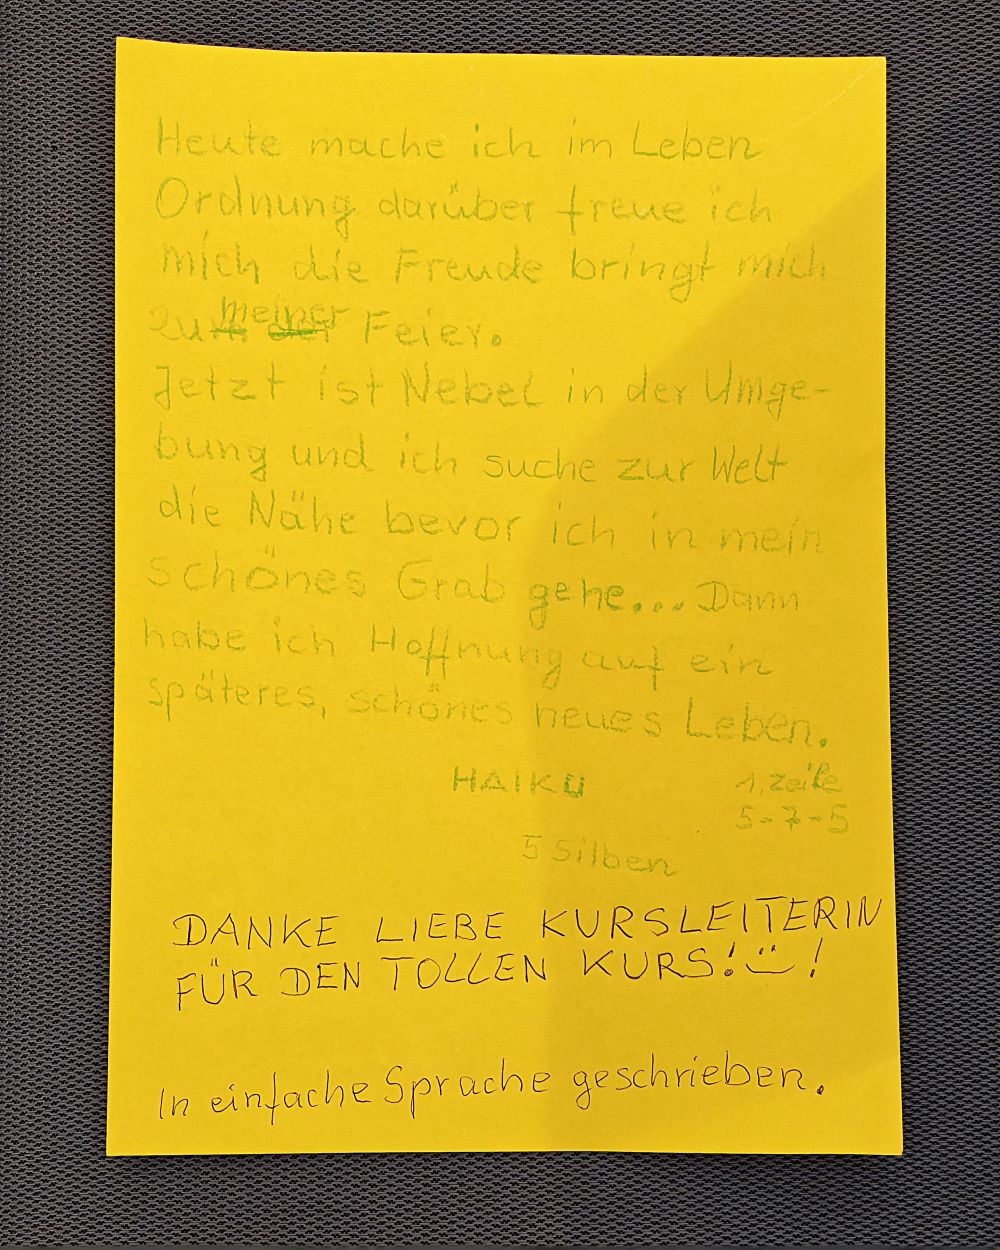 Heute mache ich im Leben
Ordnung darüber freue ich
mich die Freude bringt mich
zum der meiner Feier.
Jetzt ist Nebel in der Umge-
bung und ich suche zur Welt
die Nähe bevor ich in mein
schönes Grab gehe... Dann
habe ich Hoffnung auf ein
späteres, schönes neues Leben.
HAIKU
1. Zeile
5-7-5
5 Silben
DANKE LIEBE KURSLEITERIN
FÜR DEN TOLLEN KURS! !
In einfache Sprache geschrieben.